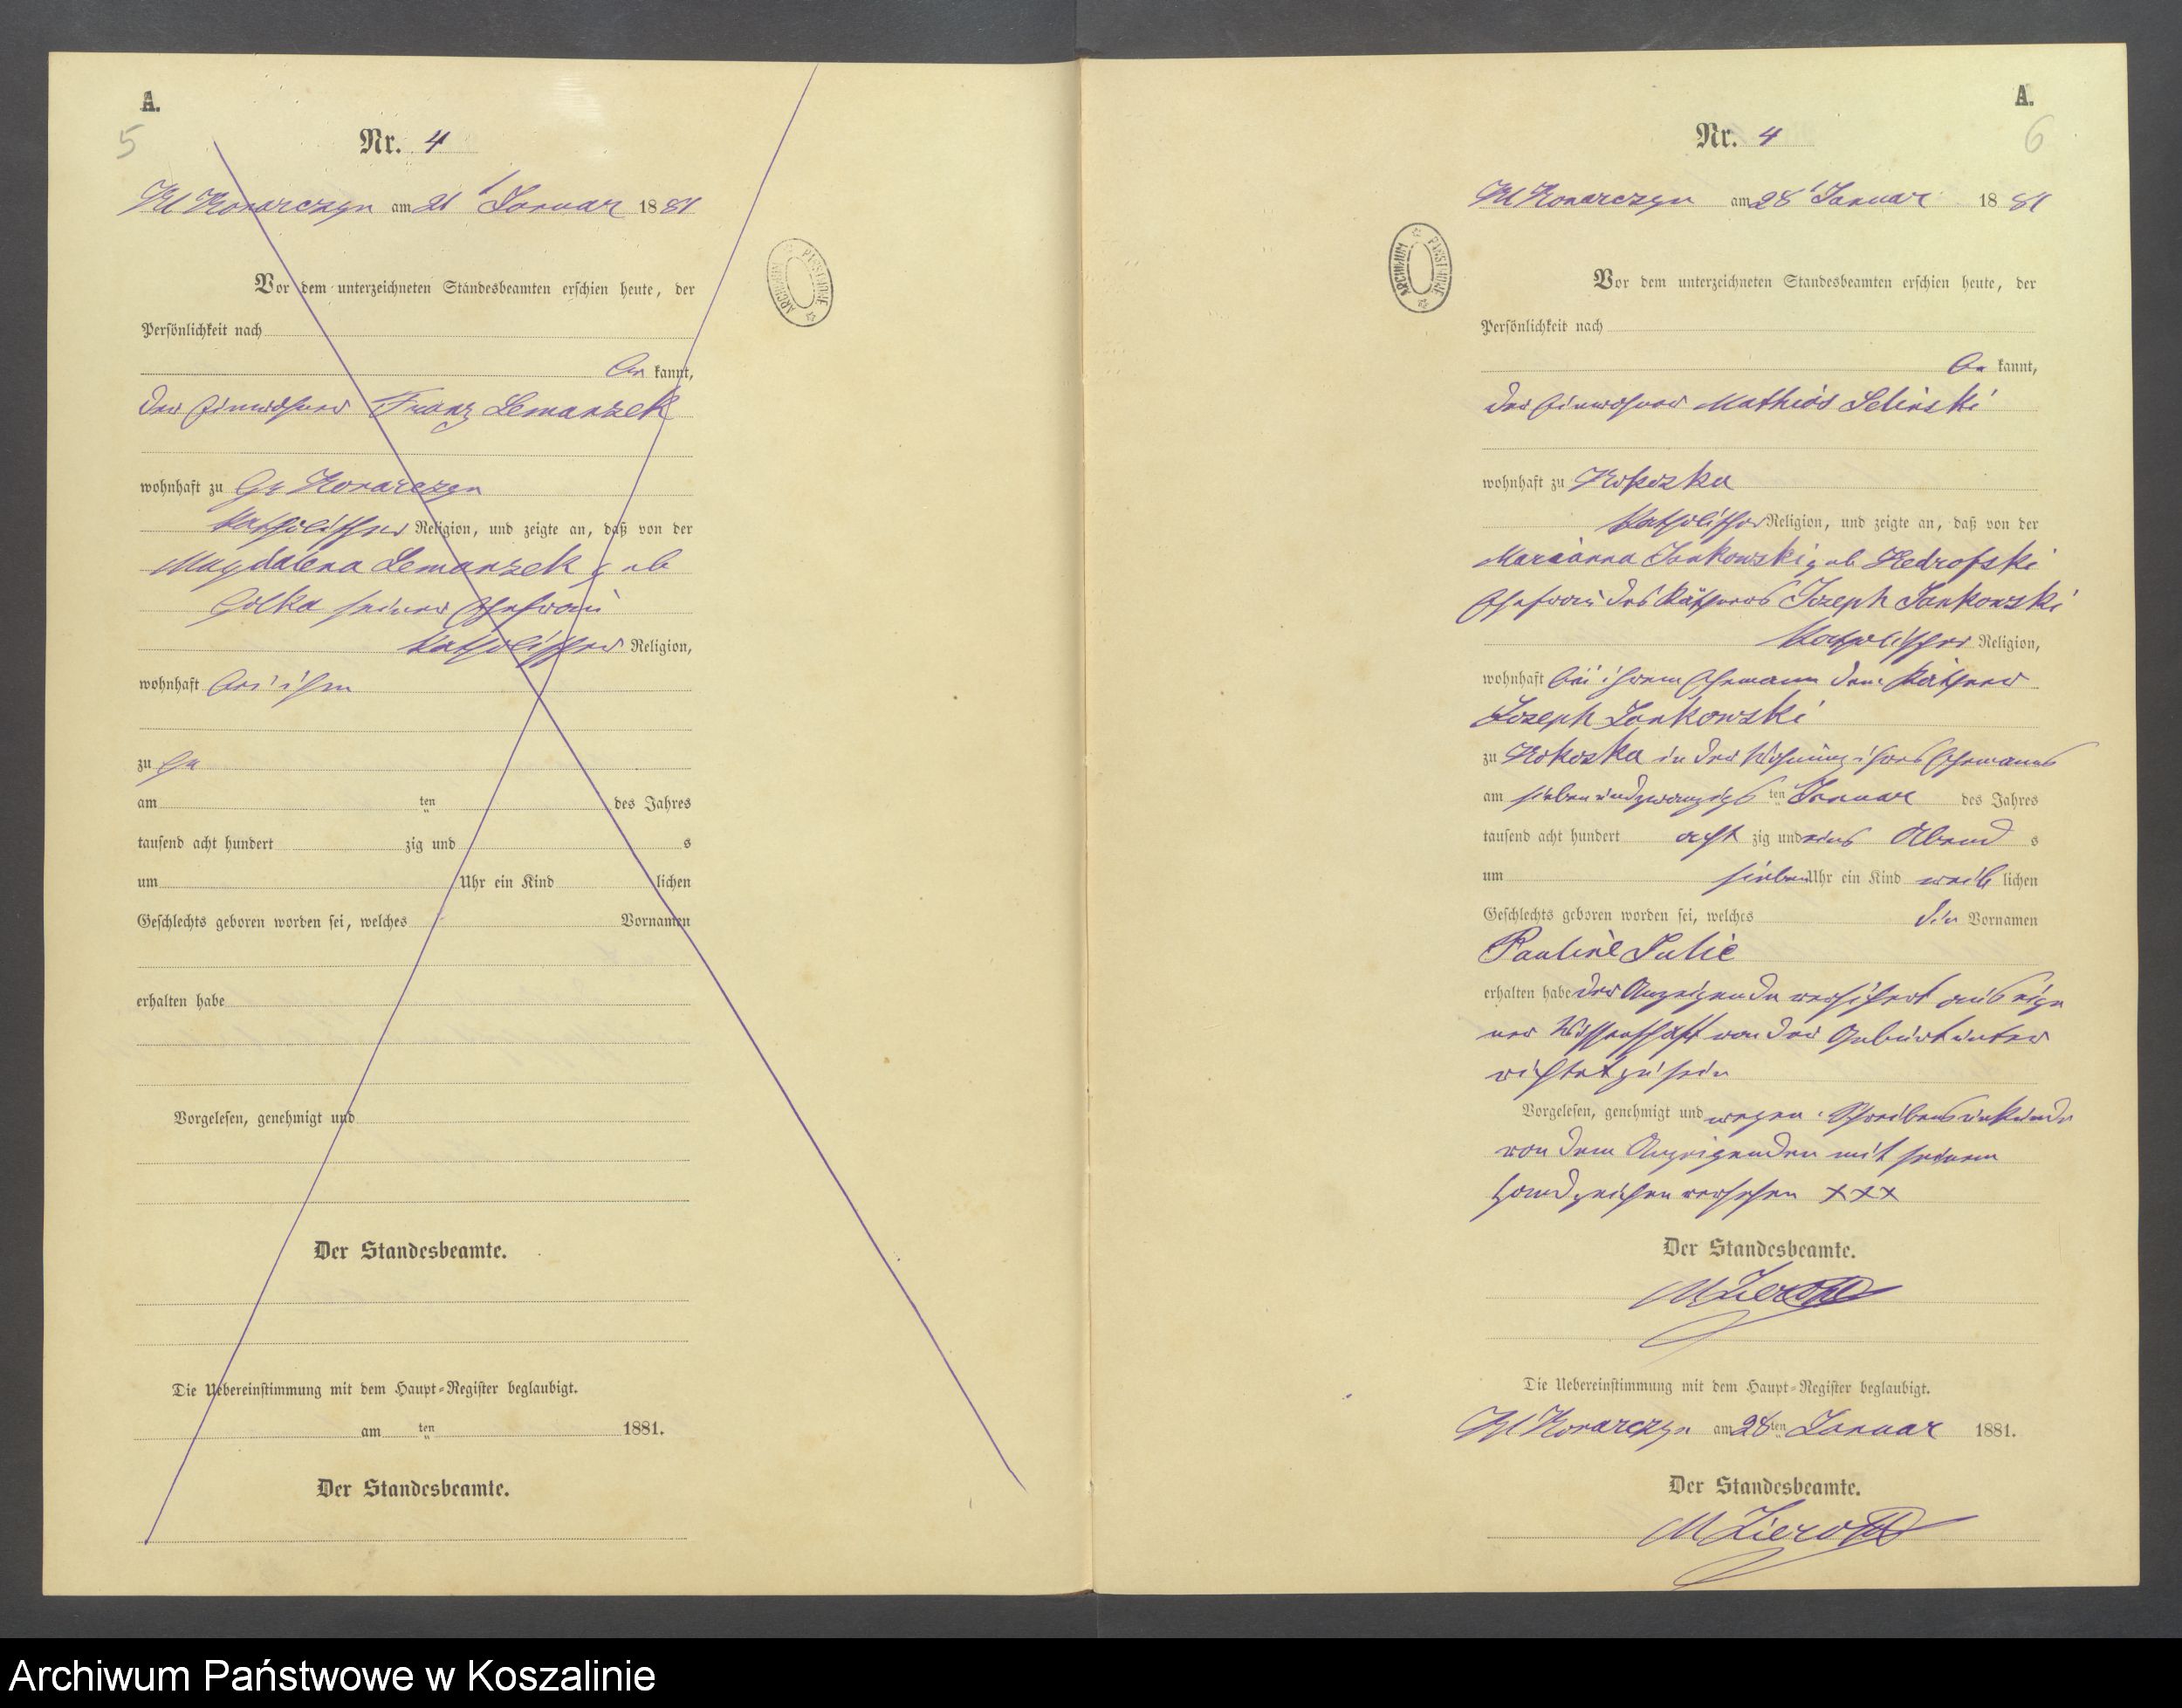 A.
5
Nr. 4
Kl Konarczyn am 21 Januar 1881
Vor dem unterzeichneten Standesbeamten erschien heute, der
Persönlichkeit nach
be kannt,
der Einwohner Franz Lemanzek
wohnhaft zu Gr Konarczyn
katholischer Religion, und zeigte an, daß von der
Magdalena Lemanzek geb
Golka seiner Ehefrau
katholischer Religion,
wohnhaft bei ihm
zu
am ten des Jahres
tausend acht hundert zig und s
um Uhr ein Kind lichen
Geschlechts geboren worden sei, welches Vornamen
erhalten habe
Vorgelesen, genehmigt und
Der Standesbeamte.
Die Uebereinstimmung mit dem Haupt-Register beglaubigt.
am ten 1881.
Der Standesbeamte.
ARCHIWUM PAŃSTWOWE
A.
6
Nr. 4
Kl Konarczyn am 28 Januar 1881
Vor dem unterzeichneten Standesbeamten erschien heute, der
Persönlichkeit nach
be kannt,
der Einwohner Mathias Selinski
wohnhaft zu Kokoszka
katholischer Religion, und zeigte an, daß von der
Marianna Jankowski geb
Ehefrau des Käthners Joseph Jankowski
katholischer Religion,
wohnhaft bei ihrem Ehemann dem Käthner
Joseph Jankowski
zu Kokoszka in der Wohnung ihres Ehemanns
am siebenundzwanzigs ten Januar des Jahres
tausend acht hundert acht zig und eins Abend s
um sieben Uhr ein Kind weib lichen
Geschlechts geboren worden sei, welches die Vornamen
Pauline Julie
erhalten habe der Anzeigende versichert aus eige
ner Wissenschaft von der Geburt unter
richtet zu sein
Vorgelesen, genehmigt und wegen Schreibensunkunde
von dem Anzeigenden mit seinem
Handzeichen versehen xxx
Der Standesbeamte.
Die Uebereinstimmung mit dem Haupt-Register beglaubigt.
Kl Konarczyn am 28 ten Januar 1881.
Der Standesbeamte.
ARCHIWUM PAŃSTWOWE
Archiwum Państwowe w Koszalinie